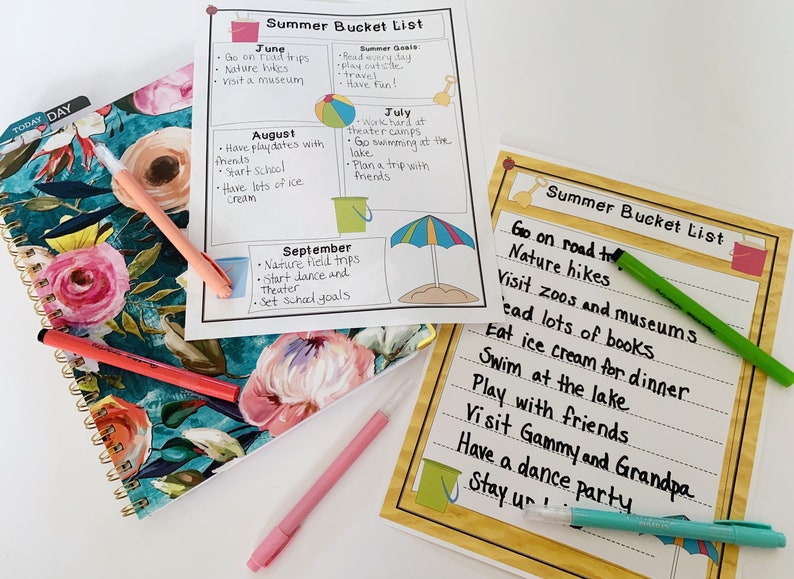 TODAY
DAY
Summer Bucket List
June
• Go on road trips
• Nature hikes
• Visit a museum
Summer Goals:
• Read every day
• play outside
• travel
• Have Fun!
August
• Have playdates with
friends
• Start school
• Have lots of ice
cream
July
• Work hard at
theater camps
• Go swimming at the
lake
• Plan a trip with
friends
September
• Nature field trips
• Start dance and
Theater
• Set school goals
Summer Bucket List
Go on road
Nature hikes
Visit zoos and museums
Read lots of books
Eat ice cream for dinner
Swim at the lake
Play with friends
Visit Gammy and Grandpa
Have a dance party
Stay up